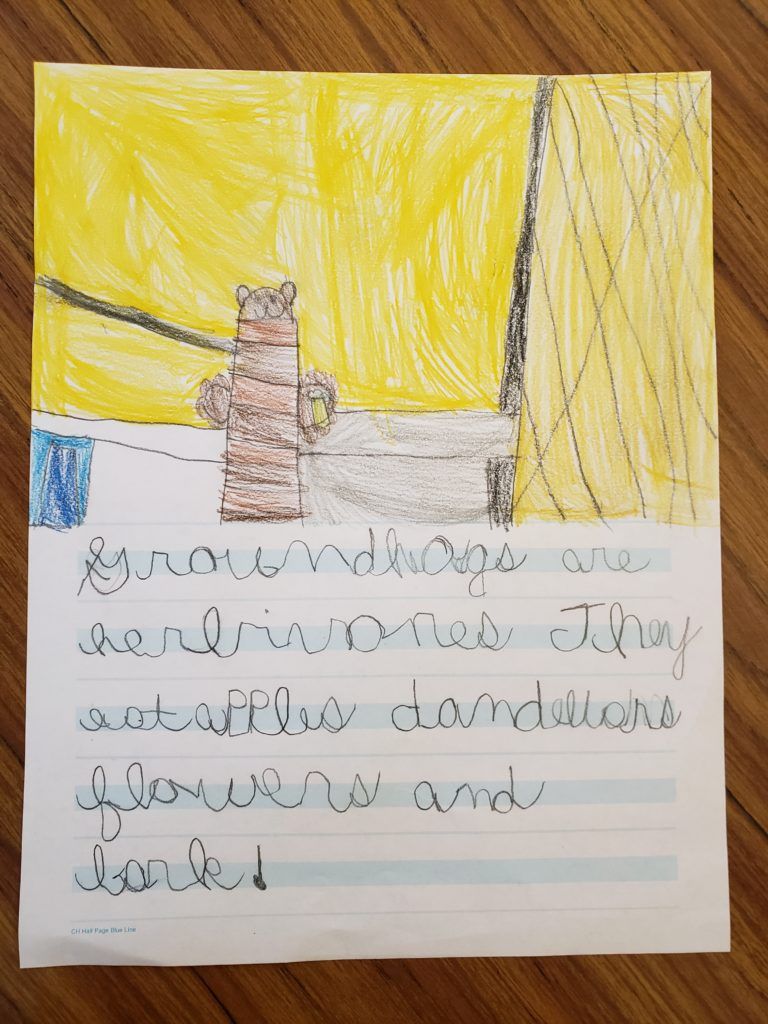 Groundhogs are
herbivores They
eat apples dandelions
flowers and
bark!
CH Half Page Blue Line